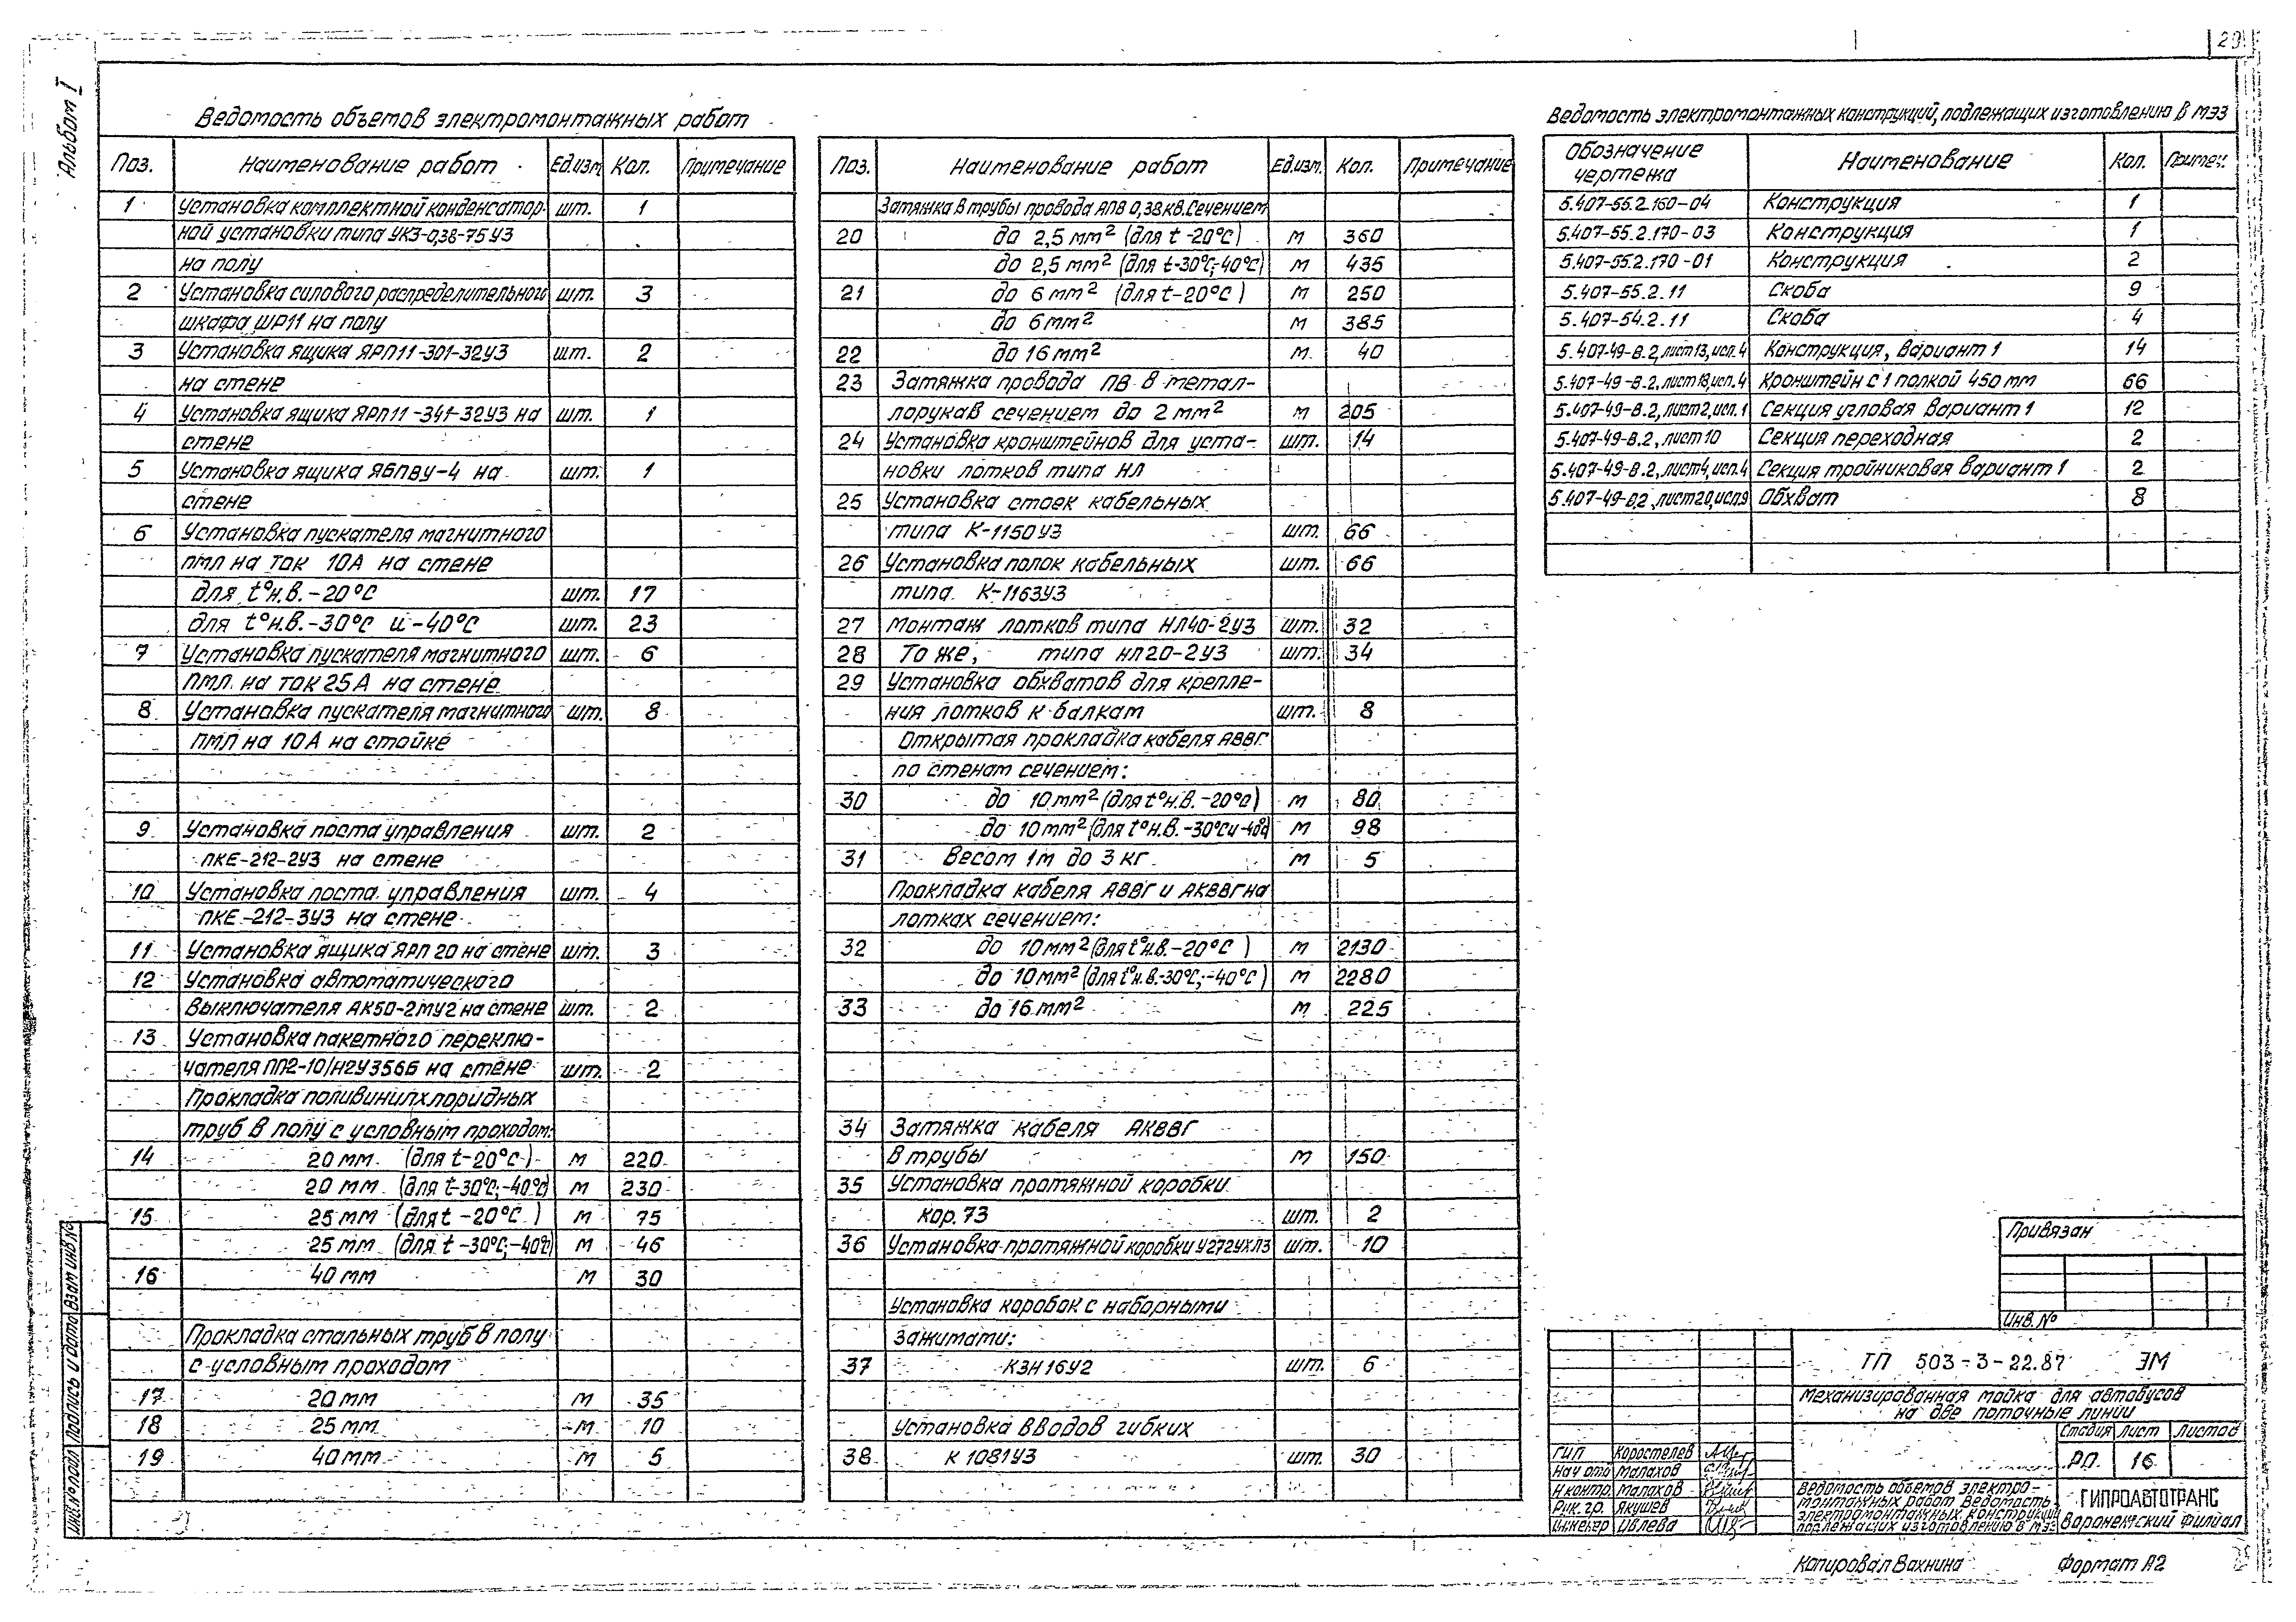 29
Альбом I
Ведомость объемов электромонтажных работ
Поз. Наименование работ Ед.изм. Кол. Примечание
1 Установка комплектной конденсатор- шт. 1
ной установки типа УКЗ-0,38-75У3
на полу
2 Установка силового распределительного шт. 3
шкафа ШР11 на полу
3 Установка ящика ЯРП11-301-32У3 шт. 2
на стене
4 Установка ящика ЯРП11-341-32У3 на шт. 1
стене
5 Установка ящика ЯБПВУ-4 на шт. 1
стене
6 Установка пускателя магнитного
ПМЛ на ток 10А на стене
для t°н.в.-20°С шт. 17
для t°н.в.-30°С и -40°С шт. 23
7 Установка пускателя магнитного шт. 6
ПМЛ на ток 25А на стене
8 Установка пускателя магнитного шт. 8
ПМЛ на 10А на стойке
9 Установка поста управления шт. 2
ПКЕ-212-2У3 на стене
10 Установка поста управления шт. 4
ПКЕ-212-3У3 на стене
11 Установка ящика ЯРП 20 на стене шт. 3
12 Установка автоматического
выключателя АК50-2МУ2 на стене шт. 2
13 Установка пакетного переклю-
чателя ПП2-10/Н2У356Б на стене шт. 2
Прокладка поливинилхлоридных
труб в полу с условным проходом:
14 20 мм (для t-20°С) м 220
20 мм (для t-30°С;-40°С) м 230
15 25 мм (для t -20°С ) м 75
25 мм (для t -30°С;-40°С) м 46
16 40 мм м 30
Прокладка стальных труб в полу
с условным проходом
17 20 мм м 35
18 25 мм м 10
19 40 мм м 5
Поз. Наименование работ Ед.изм. Кол. Примечание
Затяжка в трубы провода АПВ 0,38кв. Сечением
20 до 2,5 мм² (для t -20°С) м 360
до 2,5 мм² (для t-30°С;-40°С) м 435
21 до 6 мм² (для t-20°С ) м 250
до 6мм² м 385
22 до 16 мм² м 40
23 Затяжка провода ПВ в метал-
лорукав сечением до 2 мм² м 205
24 Установка кронштейнов для уста- шт. 14
новки лотков типа НЛ
25 Установка стоек кабельных
типа К-1150У3 шт. 66
26 Установка полок кабельных шт. 66
типа К-1163У3
27 Монтаж лотков типа НЛ40-2У3 шт. 32
28 То же, типа НЛ20-2У3 шт. 34
29 Установка обхватов для крепле-
ния лотков к балкам шт. 8
Открытая прокладка кабеля АВВГ
по стенам сечением:
30 до 10 мм² (для t°н.в.-20°С) м 80
до 10 мм² (для t°н.в.-30°С и -40°С) м 98
31 Весом 1м до 3 кг м 5
Прокладка кабеля АВВГ и АКВВГ на
лотках сечением:
32 до 10 мм² (для t°н.в.-20°С ) м 2130
до 10 мм² (для t°н.в.-30°С;-40°С) м 2280
33 до 16 мм² м 225
34 Затяжка кабеля АКВВГ
в трубы м 150
35 Установка протяжной коробки
кор. 73 шт. 2
36 Установка протяжной коробки У272УХЛ3 шт. 10
Установка коробок с наборными
зажимами:
37 КЗН16У2 шт. 6
Установка вводов гибких
38 К 1081У3 шт. 30
Ведомость электромонтажных конструкций, подлежащих изготовлению в МЭЗ
Обозначение чертежа Наименование Кол. Примеч.
5.407-55.2.160-04 Конструкция 1
5.407-55.2.170-03 Конструкция 1
5.407-55.2.170-01 Конструкция 2
5.407-55.2.11 Скоба 9
5.407-54.2.11 Скоба 4
5.407-49-В.2, лист 13, исп. 4 Конструкция, вариант 1 14
5.407-49-В.2, лист 18, исп. 4 Кронштейн с 1 полкой 450 мм 66
5.407-49-В.2, лист 2, исп. 1 Секция угловая вариант 1 12
5.407-49-В.2, лист 10 Секция переходная 2
5.407-49-В.2, лист 4, исп. 4 Секция тройниковая вариант 1 2
5.407-49-В.2, лист 20, исп. 9 Обхват 8
Привязан
Инв. №
ТП 503-3-22.87 ЭМ
Механизированная мойка для автобусов
на две поточные линии
Стадия Лист Листов
РП 16
ГИП Коростелев
Нач отд Малахов
Н.контр. Малахов
Рук. гр. Якушев
Инженер Ивлева
Ведомость объемов электро-
монтажных работ Ведомость
электромонтажных конструкций
подлежащих изготовлению в МЭЗ
ГИПРОАВТОТРАНС
Воронежский филиал
Инв.№ подл. Подпись и дата Взам инв №
Копировал Вахнина Формат А2